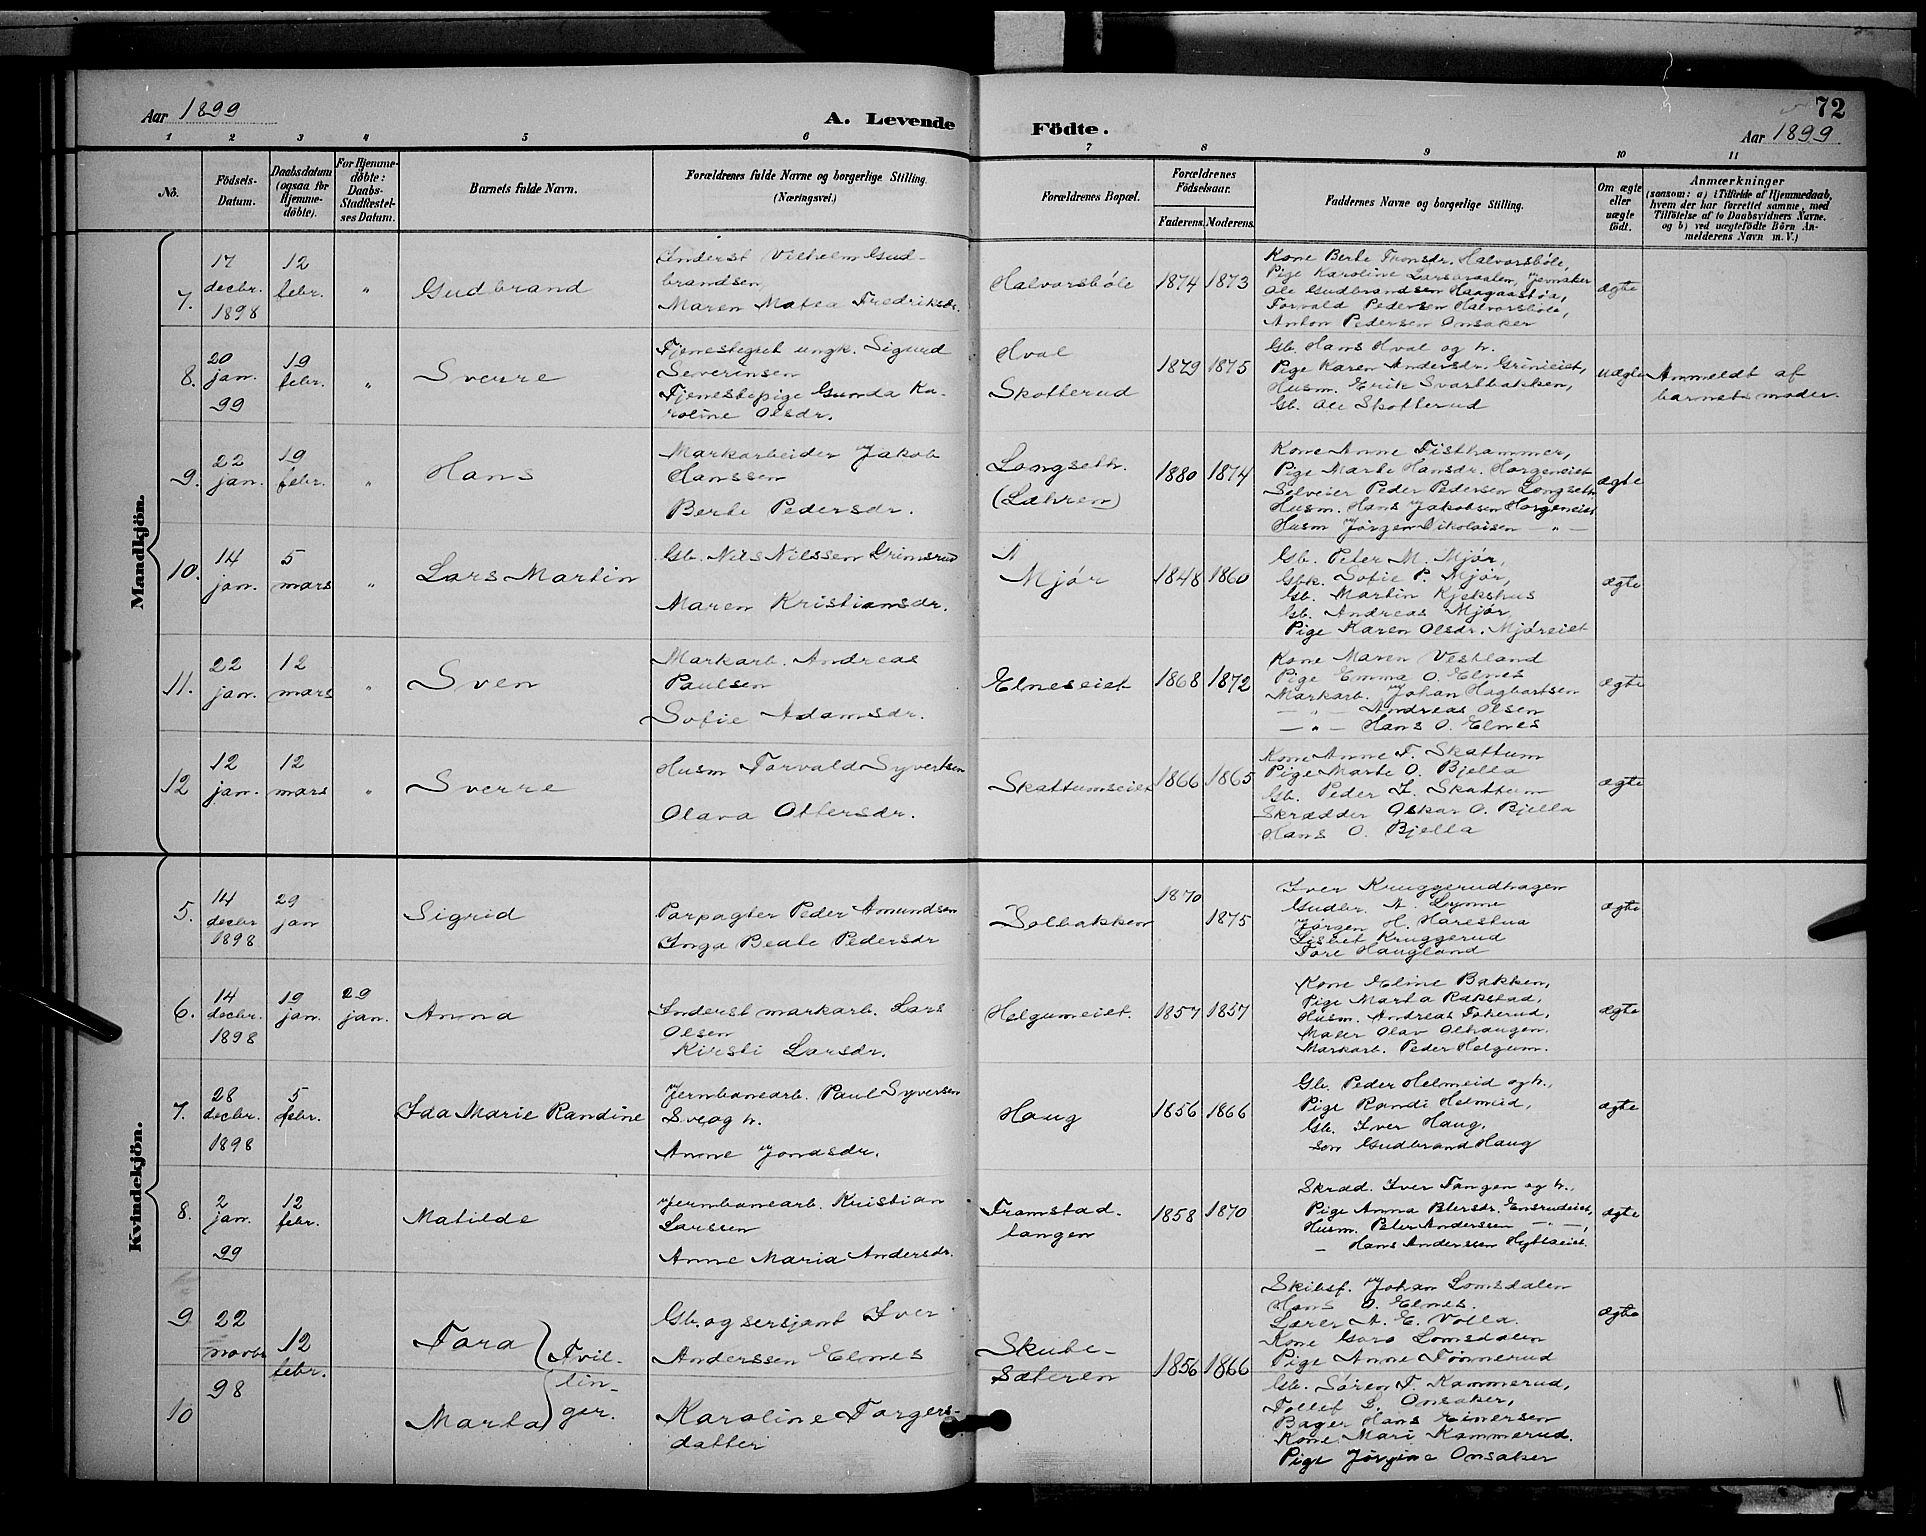 Aar 1899
A. Levende Födte.
72
Aar 1899
1 2 3 4 5 6 7 8 9 10 11
Nô.
Födsels-Datum.
Daabsdatum (ogsaa for Hjemme-döbte).
For Hjemme-döbte: Daabs-Stadfæstel-ses Datum.
Barnets fulde Navn.
Forældrenes fulde Navne og borgerlige Stilling.
(Næringsvei.)
Forældrenes Bopæl.
Forældrenes Födselsaar.
Faderens. Moderens.
Faddernes Navne og borgerlige Stilling.
Om ægte eller uægte födt.
Anmærkninger
(saasom: a) i Tilfælde af Hjemmedaab,
hvem der har forrettet samme, med
Tilföielse af to Daabsvidners Navne.
og b) ved uægtefödte Börn An-
melderens Navn m. V.)
Mandkjön.
7.
17 decbr. 1898
12 febr.
"
Gudbrand
Inderst Vilhelm Gud-
brandsen
Maren Matea Fredriksdr.
Halvorsböle
1874 1873
Kone Berte Tronsdr. Halvorsböle,
Pige Karoline Larsdalen, Jevnaker
Ole Gudbrandsen Haagaastøa,
Torvald Pedersen Halvorsböle,
Anton Pedersen Onsaker
ægte
8.
20 jan. 99
19 febr.
"
Sverre
Tjenestegut ungk. Sigurd
Severinsen
Tjenestepige Gunda Ka-
roline Olsdr.
Hval
Skotterud
1879 1875
Gb. Hans Hval og h.
Pige Karen Andersdr. Grinieiet,
Husm. Erik Svartbakken,
Gb. Ole Skotterud
uægte
Anmeldt af
barnets moder.
9.
22 jan.
19 febr.
"
Hans
Markarbeider Jakob
Hanssen
Berte Pedersdr.
Longseth.
(Læhren)
1880 1874
Kone Anne Fisthammer,
Pige Marte Hansdr. Horgeneiet
Selveier Peder Pedersen Longseth
Husm. Hans Jakobsen Horgeneiet
Husm Jørgen Nikolaisen — " —
ægte
10.
14 jan.
5 mars
"
Lars Martin
Gb. Nils Nilssen Grimsrud
Maren Kristiansdr.
N
Mjør
1848 1860
Gb. Peter M. Mjør,
Gbk. Sofie P. Mjør,
Gb. Martin Kjekshus
Gb. Andreas Mjør
Pige Karen Olsdr. Mjøreiet
ægte
11.
22 jan.
12 mars
"
Sven
Markarb. Andreas
Paulsen
Sofie Adamsdr.
Elneseiet
1868 1872
Kone Maren Vestland
Pige Emma O. Elnes
Markarb. Johan Hagbartsen
— " — Andreas Olsen
— " — Hans O. Elnes
ægte
12
12 jan.
12 mars
"
Sverre
Husm Torvald Syvertsen
Olava Ottersdr.
Skattumseiet
1866 1865
Kone Anne T. Skattum
Pige Marte O. Bjella
Gb. Peder I. Skattum
Skrædder Oskar O. Bjella
Hans O. Bjella
ægte
Kvindekjön.
5.
14 decbr 1898
29 jan
Sigrid
Parpagter Peder Amundsen
Inga Beate Pedersdr
Solbakken
1870 1875
Iver Kruggerudhagen
Gudbr. A. Lynne
Jørgen H. Harestua
Lisbet Kruggerud
Tore Haugland
ægte
6.
14 decbr. 1898
19 jan.
29 jan.
Anna
Inderst markarb. Lars
Olsen
Kirsti Larsdr.
Helgumeiet.
1857 1857
Kone Eline Bakken,
Pige Marta Rakstad,
Husm. Andreas Fokerud,
Maler Olav Olhaugen
Markarb. Peder Helgum.
ægte
7.
28 decbr. 1898
5 febr.
Ida Marie Randine
Jernbanearb. Paul Syversen
Sve og h.
Anne Jondsdr.
Haug
1856 1866
Gb. Peder Helmeid og h.,
Pige Randi Helmeid,
Gb. Iver Haug,
søn Gudbrand Haug
ægte
8.
2 jan. 99
12 febr.
Matilde
Jernbanearb. Kristian
Larssen
Anne Maria Andersdr.
Framstad-
tangen
1858 1870
Skræd. Iver Tangen og h.,
Pige Anna Petersdr. Ensrudeiet,
Husm. Peter Anderssen — " —,
— Hans Anderssen Hyttaeiet.
ægte
9
22 novbr 98
12 febr.
Tora
Tvil-
lin-
ger.
Gb. og sersjant Iver
Anderssen Elnes
Skute-
Sæteren
1856 1866
Skibsf. Johan Lomsdalen
Hans O. Elnes.
Lærer A. E. Volla.
Kone Goro Lomsdalen
Pige Anne Tønnerud
ægte
10
Marta
Karoline Torgers-
datter
Gb. Søren T. Kammerud,
Tollef G. Onsaker,
Bager Hans Einersen
Kone Mari Kammerud.
Pige Jørgine Onsaker